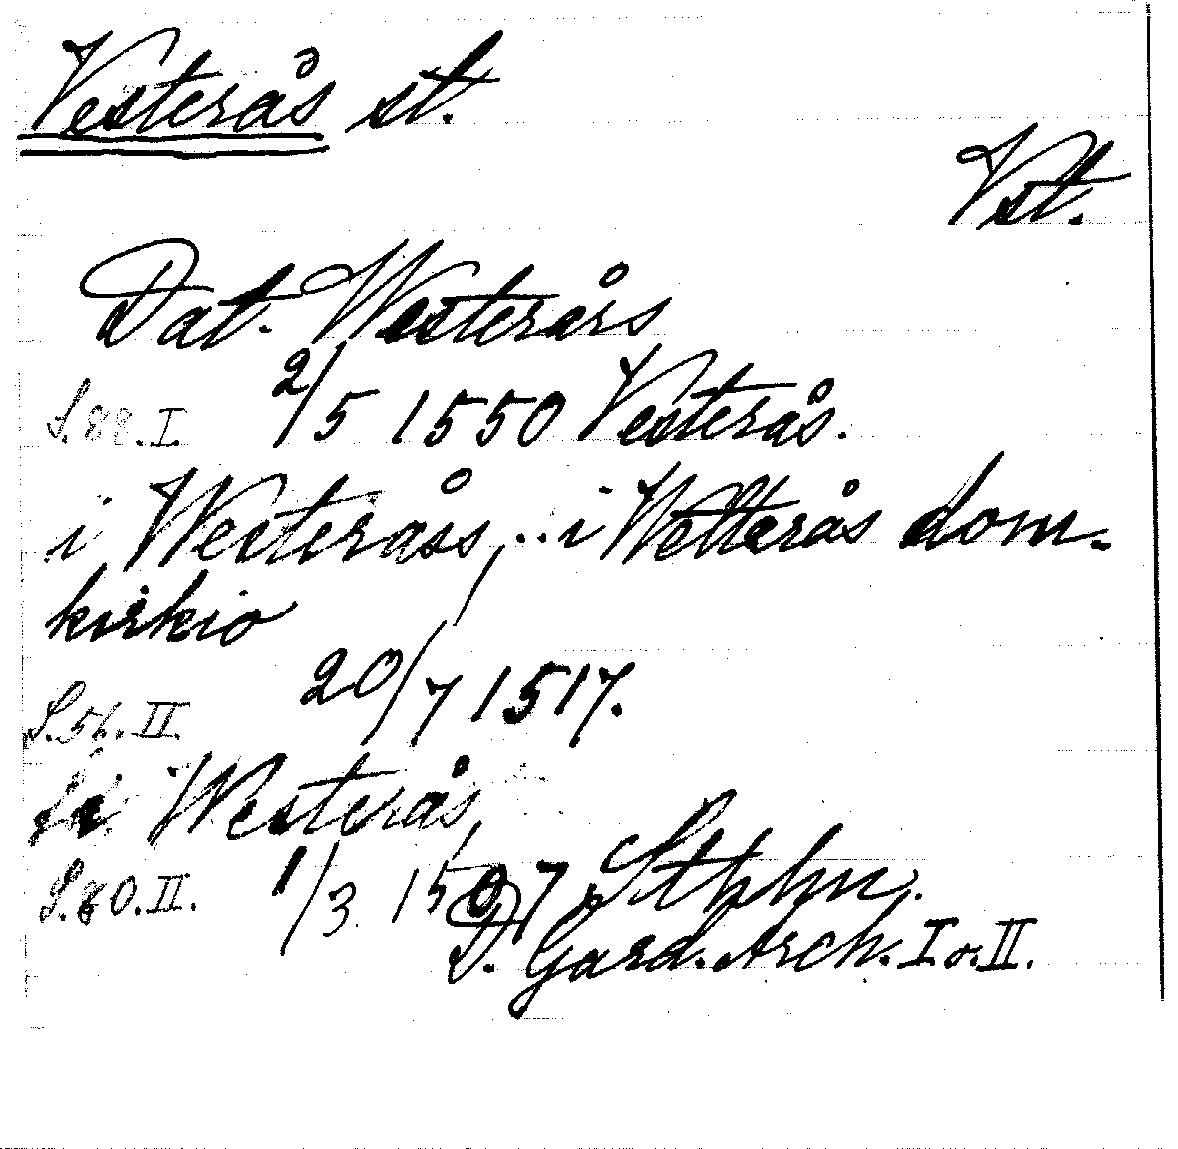 Vesterås st.
Vst.
Dat. Westerårs
S. 88. I. 2/5 1550 Vesterås.
i Westeråss, .. i Wetterås dom-
kirkio
S. 56. II. 20/7 1517.
Westerås,
S. 80. II. 1/3 1507 Sthhn.
D. Gard. Arch. I o. II.